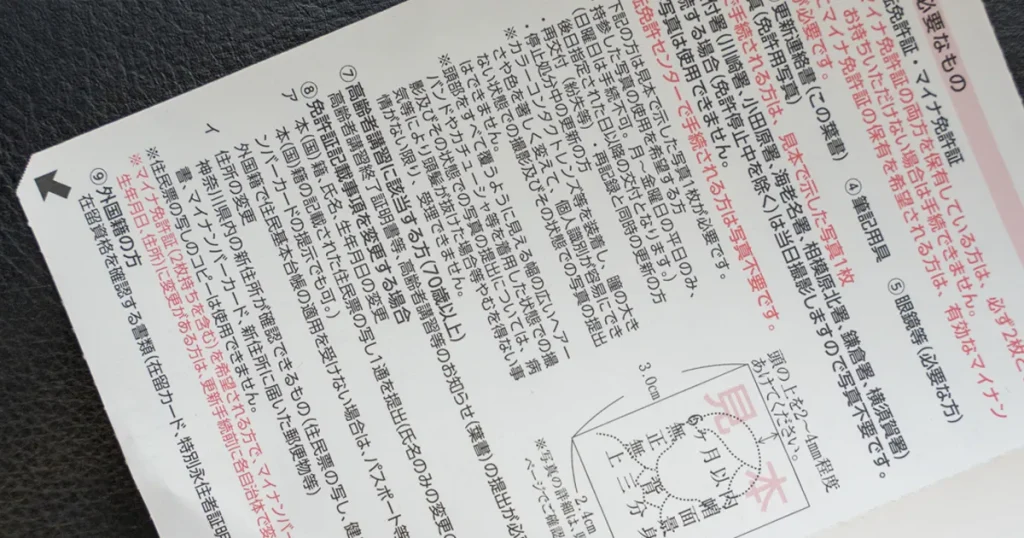 必要なもの
証免許証・マイナ免許証
イナ免許証の両方を保有している方は、必ず2枚と
お持ちいただけない場合は手続できません。
マイナ免許証の保有を希望される方は、有効なマイナン
が必要です。
更新連絡書(この葉書) ④筆記用具 ⑤眼鏡等(必要な方)
写真(免許用写真)
手続される方は、見本で示した写真1枚
警察署(川崎署、小田原署、海老名署、相模原北署、鎌倉署、横須賀署)
続する場合(免許停止中を除く)は当日撮影しますので写真不要です。
写真は使用できません。
免許センターで手続される方は写真不要です。
下記の方は見本で示した写真1枚が必要です。
・持参した写真の使用を希望する方
(日曜日は手続不可。月~金曜日の平日のみ、
後日指定された日以降の交付となります。)
・再交付(紛失等)の方 ・再記録と同時の更新の方
・停止処分中の更新の方
※カラーコンタクトレンズ等を装着し、瞳の大き
さや色を著しく変えて、個人識別が容易にでき
ない状態での撮影及びその状態での写真の提出
はできません。
※頭部をすべて覆うように見える幅の広いヘアー
バンドやカチューシャ等を着用した状態での撮
影及びその状態での写真の提出については、病
気等により頭髪が抜けた場合等やむを得ない事
情がない限り、受理できません。
⑦高齢者講習に該当する方(70歳以上)
高齢者講習終了証明書等、高齢者講習等のお知らせ(葉書)の提出が必
⑧免許証記載事項を変更する場合
ア 本(国)籍、氏名、生年月日の変更
本(国)籍の記載された住民票の写し1通を提出(氏名のみの変更の
ンバーカードの提示でも可。)
外国籍で住民基本台帳の適用を受けない場合は、パスポート等
イ 住所の変更
神奈川県内の新住所が確認できるもの(住民票の写し、健
書、マイナンバーカード、新住所に届いた郵便物等)
※住民票の写しのコピーは使用できません。
※マイナ免許証(2枚持ちを含む)を希望される方で、マイナンバー
生年月日、住所)に変更がある方は、更新手続前に各自治体で変
⑨外国籍の方
在留資格を確認する書類(在留カード、特別永住者証明
頭の上を2~4mm程度
あけてください。
3.0cm
2.4cm
見本
6ヶ月以内
無帽
正面
無背景
上三分身
※写真の詳細は、
ページでご確認